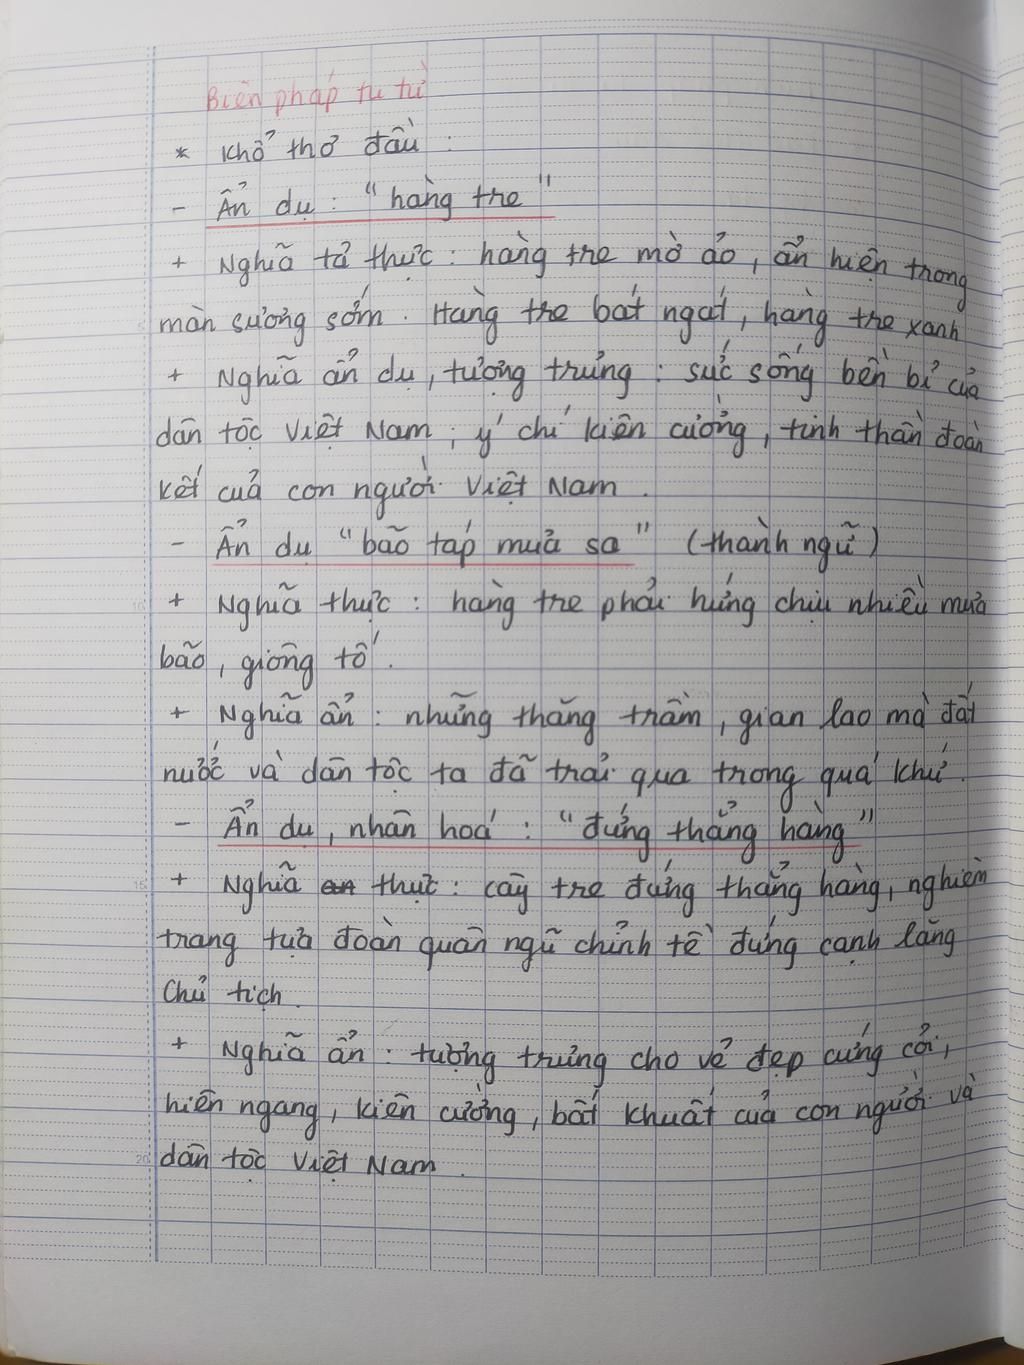 Biện pháp tu từ
* Khổ thơ đầu :
- Ẩn dụ : “hàng tre”
+ Nghĩa tả thực : hàng tre mờ ảo, ẩn hiện trong
màn sương sớm. Hàng tre bát ngát, hàng tre xanh
+ Nghĩa ẩn dụ, tượng trưng : sức sống bền bỉ của
dân tộc Việt Nam, ý chí kiên cường, tinh thần đoàn
kết của con người Việt Nam.
- Ẩn dụ “bão táp mưa sa” (thành ngữ)
+ Nghĩa thực : hàng tre phải hứng chịu nhiều mưa
bão, giông tố.
+ Nghĩa ẩn : những thăng trầm, gian lao mà đất
nước và dân tộc ta đã trải qua trong quá khứ.
- Ẩn dụ, nhân hoá : “đứng thẳng hàng”
+ Nghĩa thực : cây tre đứng thẳng hàng, nghiêm
trang tựa đoàn quân ngũ chỉnh tề đứng cạnh lăng
Chủ tịch.
+ Nghĩa ẩn : tượng trưng cho vẻ đẹp cứng cỏi,
hiên ngang, kiên cường, bất khuất của con người và
dân tộc Việt Nam.